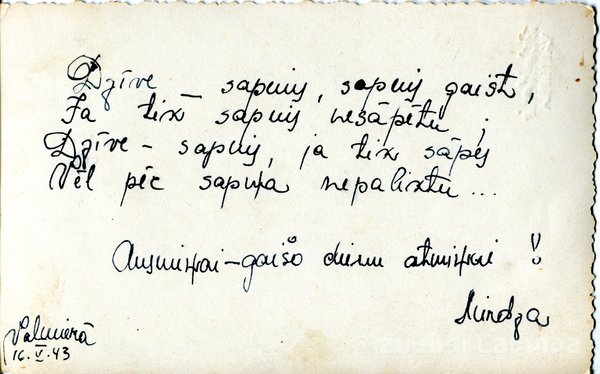 Dzīve – sapnis, sapnis gaist,
Ja tik sapnis nesāpētu;
Dzīve – sapnis, ja tik sāpes
Vēl pēc sapņa nepaliktu...
Ausmiņai – gaišo dienu atmiņai!
Mirdza
Valmierā
16.V.43